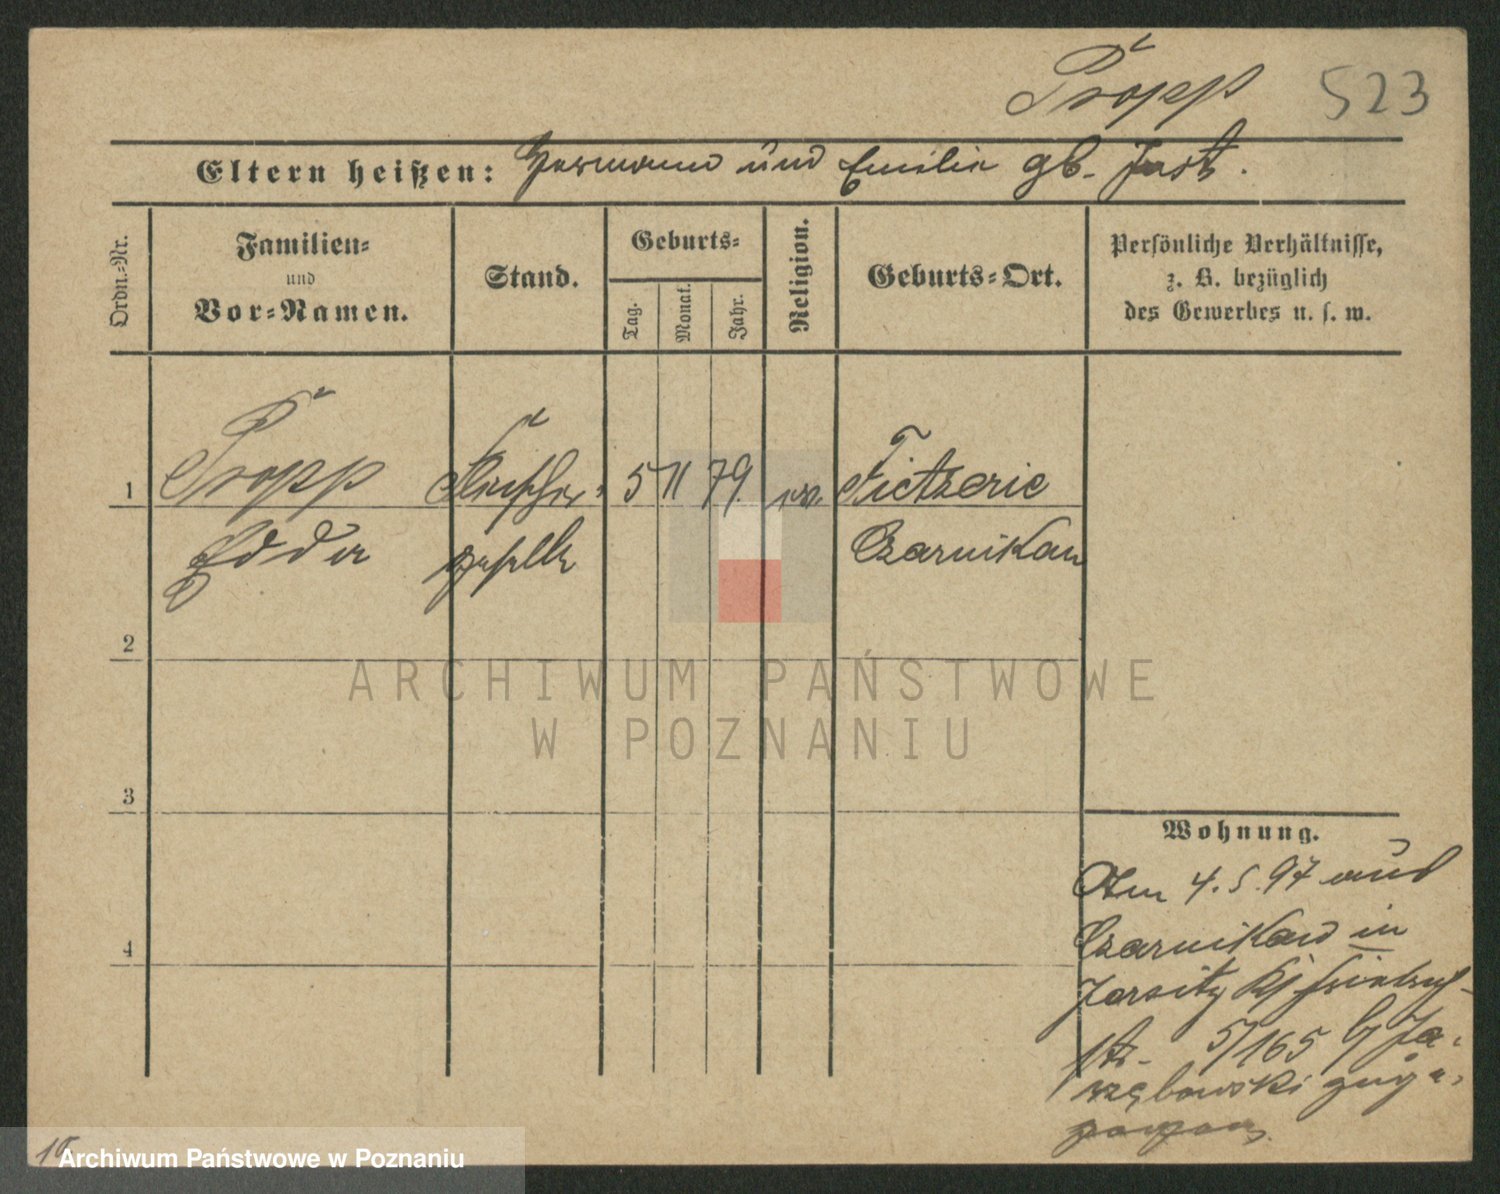 Tropp 523
Eltern heißen: Hermann und Emilie gb. Jast.
Ordn.-Nr.
Familien-
und
Vor-Namen.
Stand.
Geburts-
Tag.
Monat.
Jahr.
Religion.
Geburts-Ort.
Persönliche Verhältnisse,
z. B. bezüglich
des Gewerbes u. s. w.
1 Tropp Fleischer- 5 11 79. ev. Fictzerie
geselle Czarnikau
2
3
4
Wohnung.
Am 4. 5. 97 aus
Czarnikau in
Jersitz
str. 5/165 b/ Ja-
rzębowski zuge-
zogen.
ARCHIWUM PAŃSTWOWE
W POZNANIU
Archiwum Państwowe w Poznaniu